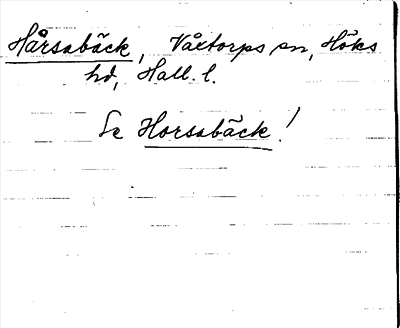 Hårsabäck, Våxtorps sn, Höks
hd, Hall. l.
Se Horsabäck!